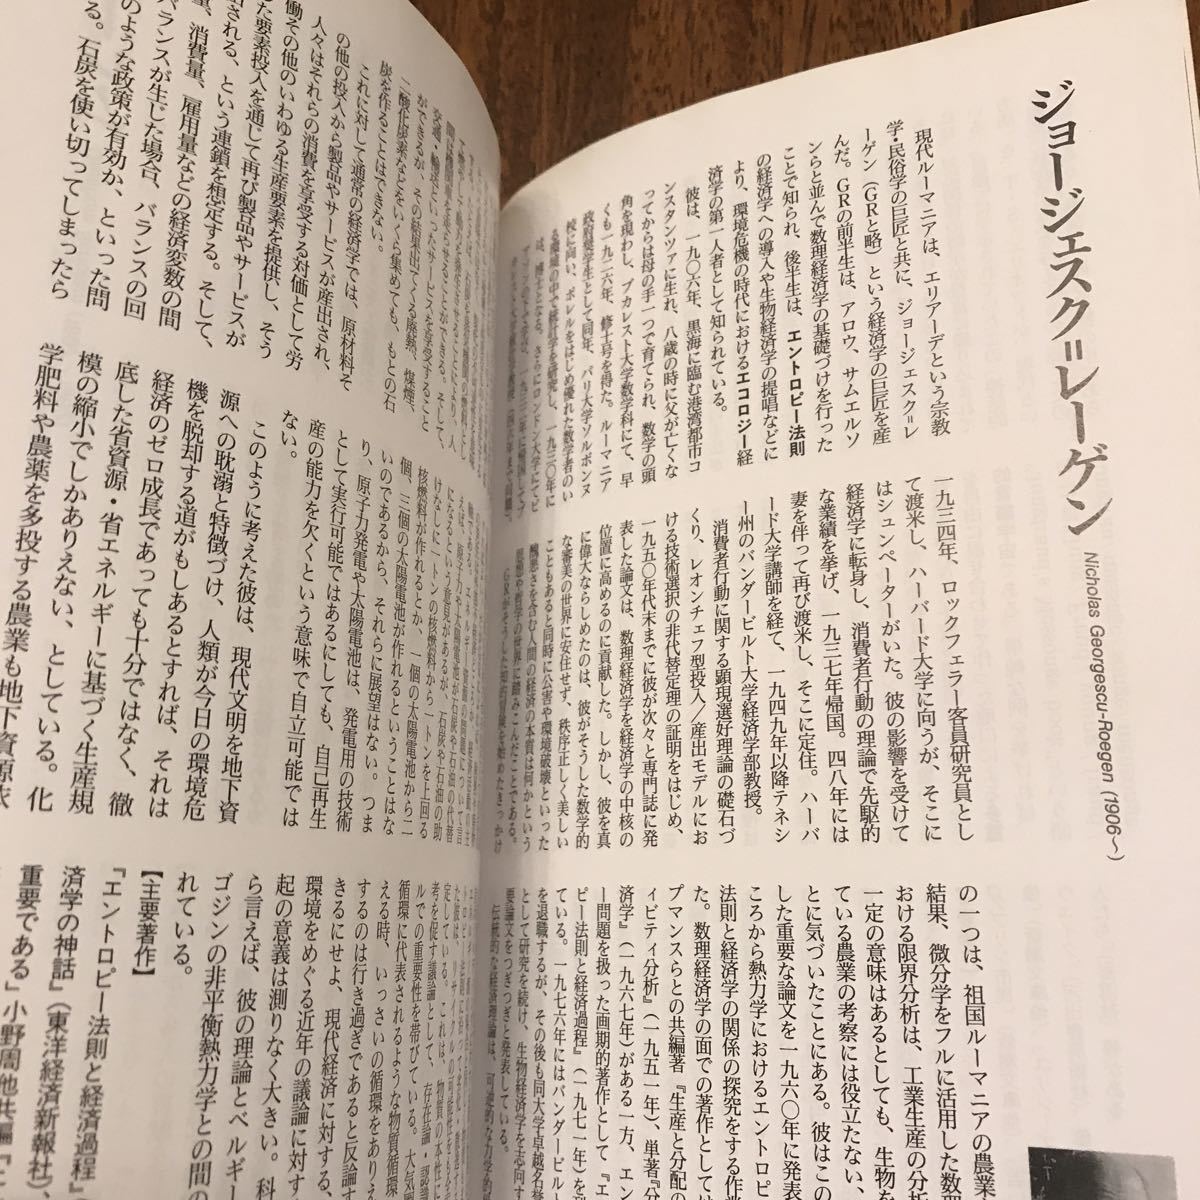 ジョージェスク=レーゲン
Nicholas Georgescu-Roegen (1906〜)
現代ルーマニアは、エリアーデという宗教
学・民俗学の巨匠と共に、ジョージェスク=レ
ーゲン(GRと略)という経済学の巨匠を産
んだ。GRの前半生は、アロウ、サムエルソ
ンらと並んで数理経済学の基礎づけを行った
ことで知られ、後半生は、エントロピー法則
の経済学への導入や生物経済学の提唱などに
より、環境危機の時代におけるエコロジー経
済学の第一人者として知られている。
彼は、一九〇六年、黒海に臨む港湾都市コ
ンスタンツァに生れ、八歳の時に父が亡くな
ってからは母の手一つで育てられ、数学の頭
角を現わし、ブカレスト大学数学科にて、早
くも一九二六年、修士号を得た。ルーマニア
政府奨学生として同年、パリ大学ソルボンヌ
校に向い、ボレルをはじめ優れた数学者のい
る環境の中で統計学を研究し、一九三〇年に
は、博士となる。さらにロンドン大学にてピ
一九三四年、ロックフェラー客員研究員とし
て渡米し、ハーバード大学に向うが、そこに
はシュンペーターがいた。彼の影響を受けて
経済学に転身し、消費者行動の理論で先駆的
な業績を挙げ、一九三七年帰国。四八年には
妻を伴って再び渡米し、そこに定住。ハーバ
ード大学講師を経て、一九四九年以降テネシ
ー州のバンダービルト大学経済学部教授。
消費者行動に関する顕現選好理論の礎石づ
くり、レオンチェフ型投入/産出モデルにお
ける技術選択の非代替定理の証明をはじめ、
一九五〇年代末までに彼が次々と専門誌に発
表した論文は、数理経済学を経済学の中核の
位置に高めるのに貢献した。しかし、彼を真
に偉大ならしめたのは、彼がそうした数学的
な審美の世界に安住せず、秩序正しく美しい
こともあると同時に公害や環境破壊といった
醜悪さを含む人間の経済の本質は何かという
思想や哲学の世界に踏みこんだことである。
の一つは、祖国ルーマニアの農業
結果、微分学をフルに活用した数
おける限界分析は、工業生産の分析
一定の意味はあるとしても、生物を
ている農業の考察には役立たない、
とに気づいたことにある。彼はこの
した重要な論文を一九六〇年に発表
ころから熱力学におけるエントロピ
法則と経済学の関係の探究をする作業
た。数理経済学の面での著作としては
プマンスらとの共編著『生産と分配の
ィビティ分析』(一九五一年)、単著『分
済学』(一九六七年)がある一方、エン
ー問題を扱った画期的著作として『エ
ピー法則と経済過程』(一九七一年)を
ている。一九七六年にはバンダービルト
を退職するが、その後も同大学卓越名誉
として研究を続け、生物経済学を志向す
要論文をつぎつぎと発表している。
交通・輸送といったサービスを享受すること
ができるが、その結果出てくる廃熱、煤煙、
二酸化炭素などをいくら集めても、もとの石
炭を作ることはできない。
これに対して通常の経済学では、原材料そ
の他の投入から製品やサービスが産出され、
人々はそれらの消費を享受する対価として労
働その他のいわゆる生産要素を提供し、そう
した要素投入を通じて再び製品やサービスが
出される、という連鎖を想定する。そして、
量、消費量、雇用量などの経済変数の間
バランスが生じた場合、バランスの回
のような政策が有効か、といった問
る。石炭を使い切ってしまったら
になるという意見があるが、石炭や石油の助
けなしに一トンの核燃料から一トンを上回る
核燃料が作れるとか、一個の太陽電池から二
個、三個の太陽電池が作れるということはな
いのであるから、それらに展望はない。つま
り、原子力発電や太陽電池は、発電用の技術
として実行可能ではあるにしても、自己再生
産の能力を欠くという意味で自立可能では
ない。
このように考えた彼は、現代文明を地下資
源への耽溺と特徴づけ、人類が今日の環境危
機を脱却する道がもしあるとすれば、それは
経済のゼロ成長であっても十分ではなく、徹
底した省資源・省エネルギーに基づく生産規
模の縮小でしかありえない、としている。化
学肥料や農薬を多投する農業も地下資源依
定している。これは、物質の本性に
考を促す議論として、存在論・認識
ルでの重要性を帯びている。大気
循環に代表されるような物質循環
える時、いっさいの循環をありえ
するのは行き過ぎであると反論す
きるにせよ、現代経済に対する、
環境をめぐる近年の議論に対す
起の意義は測りなく大きい。科
ら言えば、彼の理論とベルギ
ゴジンの非平衡熱力学との間の
れている。
【主要著作】
『エントロピー法則と経済過程』
済学の神話』(東洋経済新報社)、
重要である』小野周他共編『エ